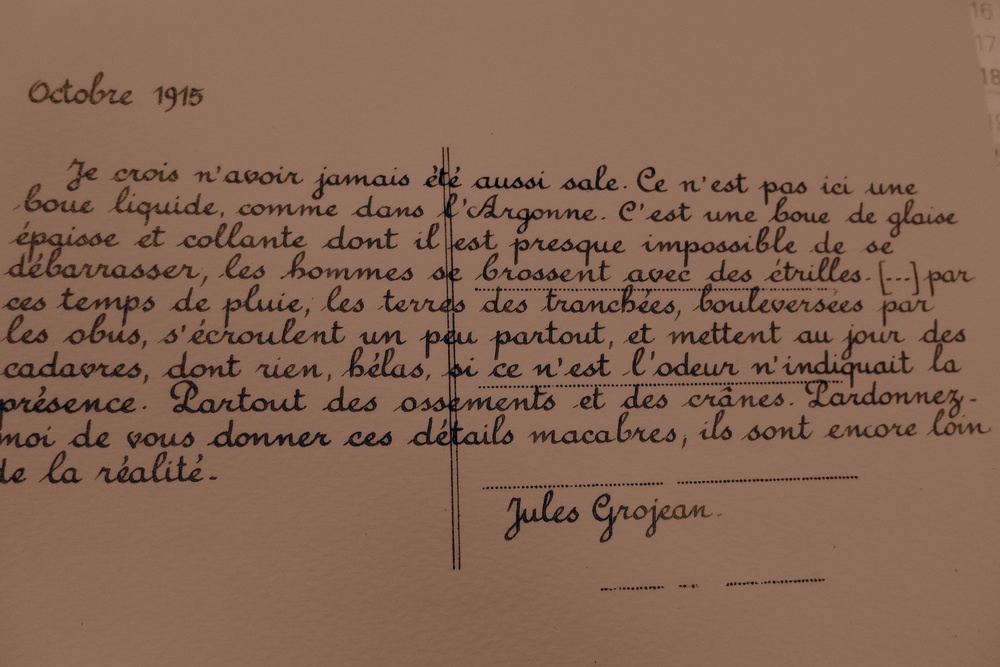 Octobre 1915
Je crois n'avoir jamais été aussi sale. Ce n'est pas ici une
boue liquide, comme dans l'Argonne. C'est une boue de glaise
épaisse et collante dont il est presque impossible de se
débarrasser, les hommes se brossent avec des étrilles. [...] par
ces temps de pluie, les terres des tranchées, bouleversées par
les obus, s'écroulent un peu partout, et mettent au jour des
cadavres, dont rien, hélas, si ce n'est l'odeur n'indiquait la
présence. Partout des ossements et des crânes. Pardonnez-
moi de vous donner ces détails macabres, ils sont encore loin
de la réalité.
Jules Grojean.
16
17
18